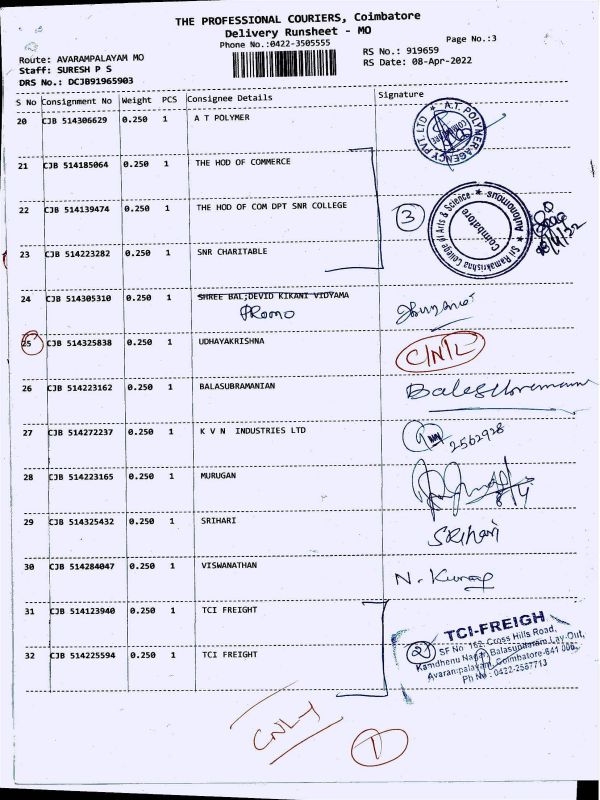 THE PROFESSIONAL COURIERS, Coimbatore
Delivery Runsheet - MO
Phone No.:0422-3505555
Page No.:3
Route: AVARAMPALAYAM MO
Staff: SURESH P S
DRS No.: DCJB91965903
RS No.: 919659
RS Date: 08-Apr-2022
S No Consignment No Weight PCS Consignee Details Signature
20 CJB 514306629 0.250 1 A T POLYMER
A.T. POLYMER AGENCY PVT. LTD
21 CJB 514185064 0.250 1 THE HOD OF COMMERCE
22 CJB 514139474 0.250 1 THE HOD OF COM DPT SNR COLLEGE
3
Sri Ramakrishna College of Arts & Science Autonomous
Coimbatore
23 CJB 514223282 0.250 1 SNR CHARITABLE
24 CJB 514305310 0.250 1 SHREE BAL;DEVID KIKANI VIDYAMA
PROMO
25 CJB 514325838 0.250 1 UDHAYAKRISHNA
C/N/L
26 CJB 514223162 0.250 1 BALASUBRAMANIAN
27 CJB 514272237 0.250 1 K V N INDUSTRIES LTD
2562928
28 CJB 514223165 0.250 1 MURUGAN
8/4
29 CJB 514325432 0.250 1 SRIHARI
SRIHARI
30 CJB 514284047 0.250 1 VISWANATHAN
N. Kumar
31 CJB 514123940 0.250 1 TCI FREIGHT
TCI-FREIGH
2
SF No 162, Cross Hills Road,
Kamdhenu Nagar, Balasundaram Lay-Out,
Avarampalayam, Coimbatore-641 006.
Ph No : 0422-2567713
32 CJB 514225594 0.250 1 TCI FREIGHT
CNL-1
1